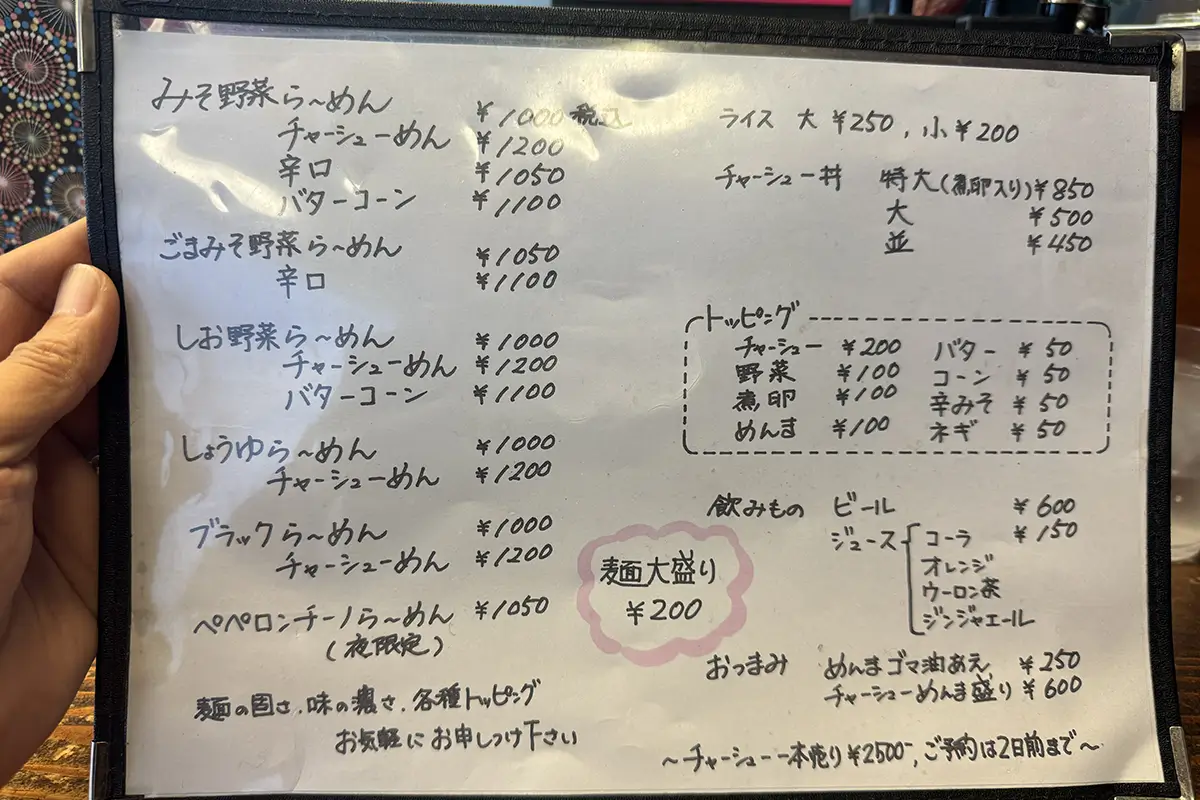 みそ野菜ら～めん ￥1000 税込
チャーシューめん ￥1200
辛口 ￥1050
バターコーン ￥1100
ごまみそ野菜ら～めん ￥1050
辛口 ￥1100
しお野菜ら～めん ￥1000
チャーシューめん ￥1200
バターコーン ￥1100
しょうゆら～めん ￥1000
チャーシューめん ￥1200
ブラックら～めん ￥1000
チャーシューめん ￥1200
ペペロンチーノら～めん ￥1050
(夜限定)
麺の固さ、味の濃さ、各種トッピング
お気軽にお申しつけ下さい
麺大盛り
￥200
ライス 大 ￥250, 小 ￥200
チャーシュー丼 特大(煮卵入り)￥850
大 ￥500
並 ￥450
トッピング
チャーシュー ￥200 バター ￥50
野菜 ￥100 コーン ￥50
煮卵 ￥100 辛みそ ￥50
めんま ￥100 ネギ ￥50
飲みもの ビール ￥600
ジュース コーラ ￥150
オレンジ
ウーロン茶
ジンジャエール
おつまみ めんまゴマ油あえ ￥250
チャーシューめんま盛り ￥600
～チャーシュー一本売り ￥2500-, ご予約は2日前まで～